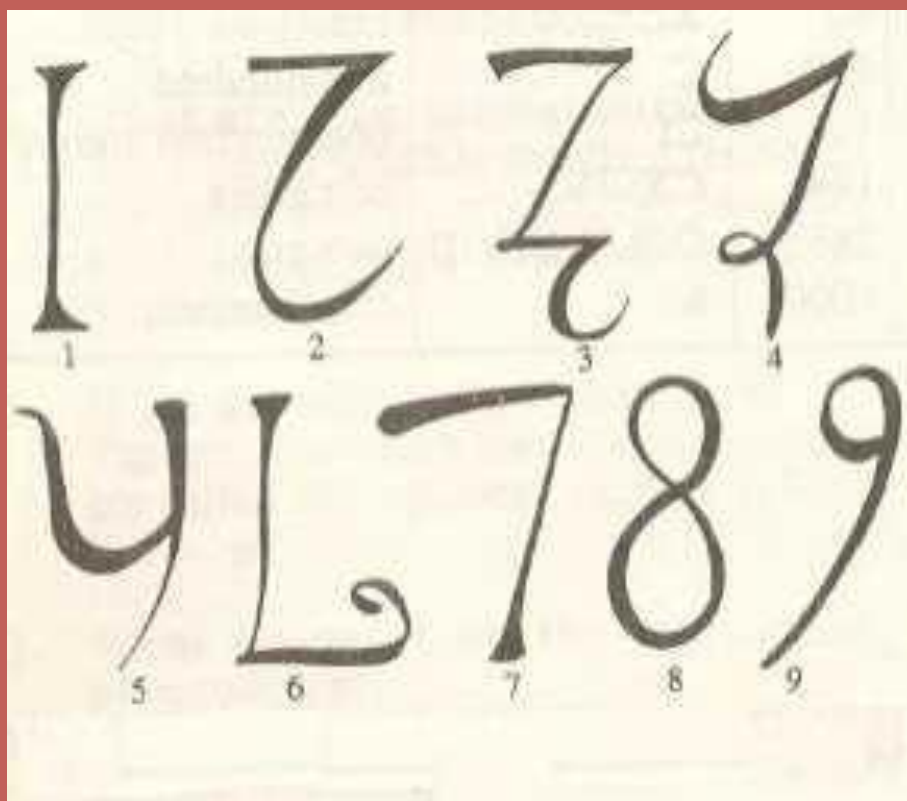 1 2 3 4
5 6 7 8 9